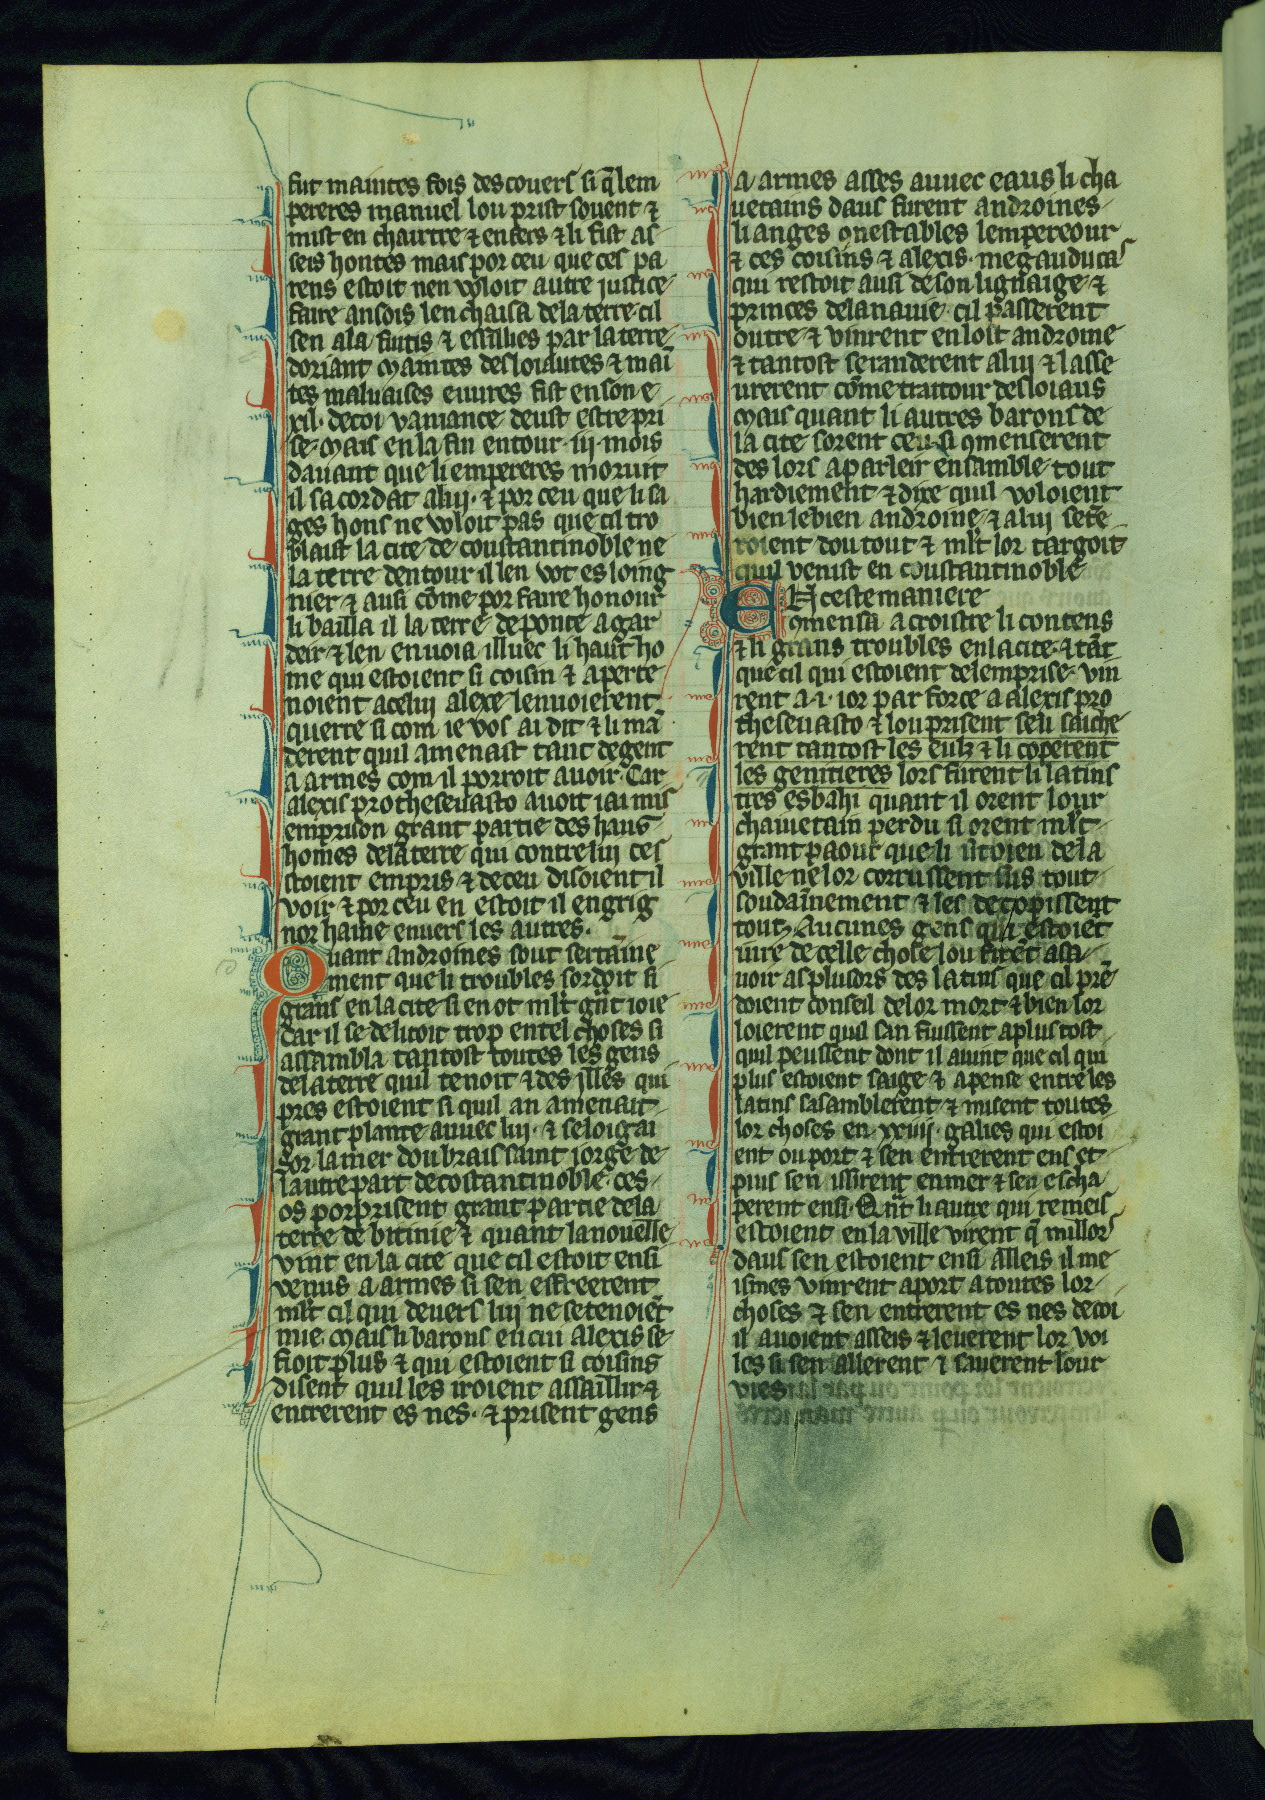 fut maintes fois descovers si q̃ lem
pereres manuel lou prist sovent ⁊
mist en chartre ⁊ en fers ⁊ li fist as
seis hontes mais por ceu que ces pa
rens estoit nen voloit autre justice
faire ansois len chaisa de la terre cil
sen ala fuitis ⁊ essillies par la terre
doriant maintes desloiautes ⁊ mai
tes malvaises euvres fist en son e
xil de coi vaniance deust estre pri
se mais en la fin entour iij mois
davant que li empereres morut
il sa cordat a lui ⁊ por ceu que li sa
ges hons ne voloit pas que cil tro
blaist la cite de coustantinoble ne
la terre dentour il len vot esloing
nier ⁊ ausi cõme por faire honour
li bailla il la terre de ponte a gar
deir ⁊ len envoia illuec li haut ho
me qui estoient si coisin ⁊ aperte
noient a celui alexe lenvoierent
querre si com ie vos ai dit ⁊ li mã
derent quil amenaist tant de gent
a armes com il porroit avoir Car
alexis prothesevasto avoit iai mis
en prison grant partie des haus
homes de la terre qui contre lui ces
stoient empris ⁊ de ceu disoient il
voir ⁊ por ceu en estoit il en grig
nor haine envers les autres.
Quant androines sout sertaine
ment que li troubles sordoit si
grans en la cite si en ot ml̃t grãt ioie
Car il se delitoit trop en tel choses si
assambla tantost toutes les gens
de la terre quil tenoit ⁊ des illes qui
pres estoient si quil an amenait
grant plante avvec lui ⁊ se loigai
sor la mer dou brais saint iorge de
lautre part de costantinoble ces
os porprisent grant partie de la
terre de bitinie ⁊ quant la novelle
vint en la cite que cil estoit ensi
venus a armes si sen effreerent
ml̃t cil qui devers lui ne se tenoiẽt
mie Mais li barons en cui alexis se
fioit plus ⁊ qui estoient si coising
disent quil les iroient assaillir ⁊
entrerent es nes ⁊ prisent gens
a armes asses avvec eaus li cha
vetains daus furent androines
li anges ꝯnestables lempereour
⁊ ces coisins ⁊ alexis megauducas
qui restoit ausi de son lignaige ⁊
princes de la navie cil passerent
outre ⁊ vinrent en lost androine
⁊ tantost se randerent a lui ⁊ lasse
urerent cõme traitour desloiaus
Mais quant li autres barons de
la cite sorent ceu si ꝯmenserent
des lors a parleir ensamble tout
hardiement ⁊ dire quil voloient
bien le bien androine ⁊ a lui se te
roient dou tout ⁊ ml̃t lor targoit
quil venist en coustantinoble
EN ceste maniere
ꝯmensa a croistre li contens
⁊ li grans troubles en la cite ⁊ tãt
que cil qui estoient de lemprise vin
rent a .i. ior par force a alexis pro
thesevasto ⁊ lou prisent se li saiche
rent tantost les eulz ⁊ li coperent
les genitieres lors furent li latins
tres esbahi quant il orent lour
chavetain perdu si orent ml̃t
grant paour que li citoien de la
ville ne lor corrussent sus tout
soudainnement ⁊ les decopissent
tout Aucunes gens qui estoiẽt
vire de celle chose lou firẽt asa
voir as plusors des latins que cil prẽ
doient conseil de lor mort ⁊ bien lor
loierent quil san fuissent a plus tost
quil peussent dont il avint que cil qui
plus estoient saige ⁊ apense entre les
latins sasamblerent ⁊ misent toutes
lor choses en xviiij galies qui estoi
ent ou port ⁊ sen entrerent ens et
puis sen issirent en mer ⁊ sen escha
perent ensi Qñt li autre qui remeis
estoient en la ville virent q̃ millor
daus sen estoient ensi alleis il me
ismes vinrent a port a toutes lor
choses ⁊ sen entrerent es nes de coi
il avoient asseis ⁊ leverent lor voi
les si sen allerent ⁊ saverent lour
vies